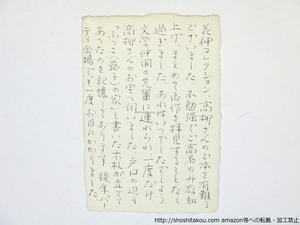 花神コレクション、高柳さんの御本を有難う
ございました。不勉強でご高名のみ存知
上げ、まとめて御作を拝見することなく
過ぎました。あれはいつでしたでしょう、
文学仲間の先輩に連れられ、一度だけ
高柳さんのお宅へ伺いました。戸口の辺り
の家」と書いた木札が立てて
あったのを記憶しております。後年パー
ティ会場でも一度お目にかかりました。
http://shoshitakou.com amazon等への転載・加工禁止